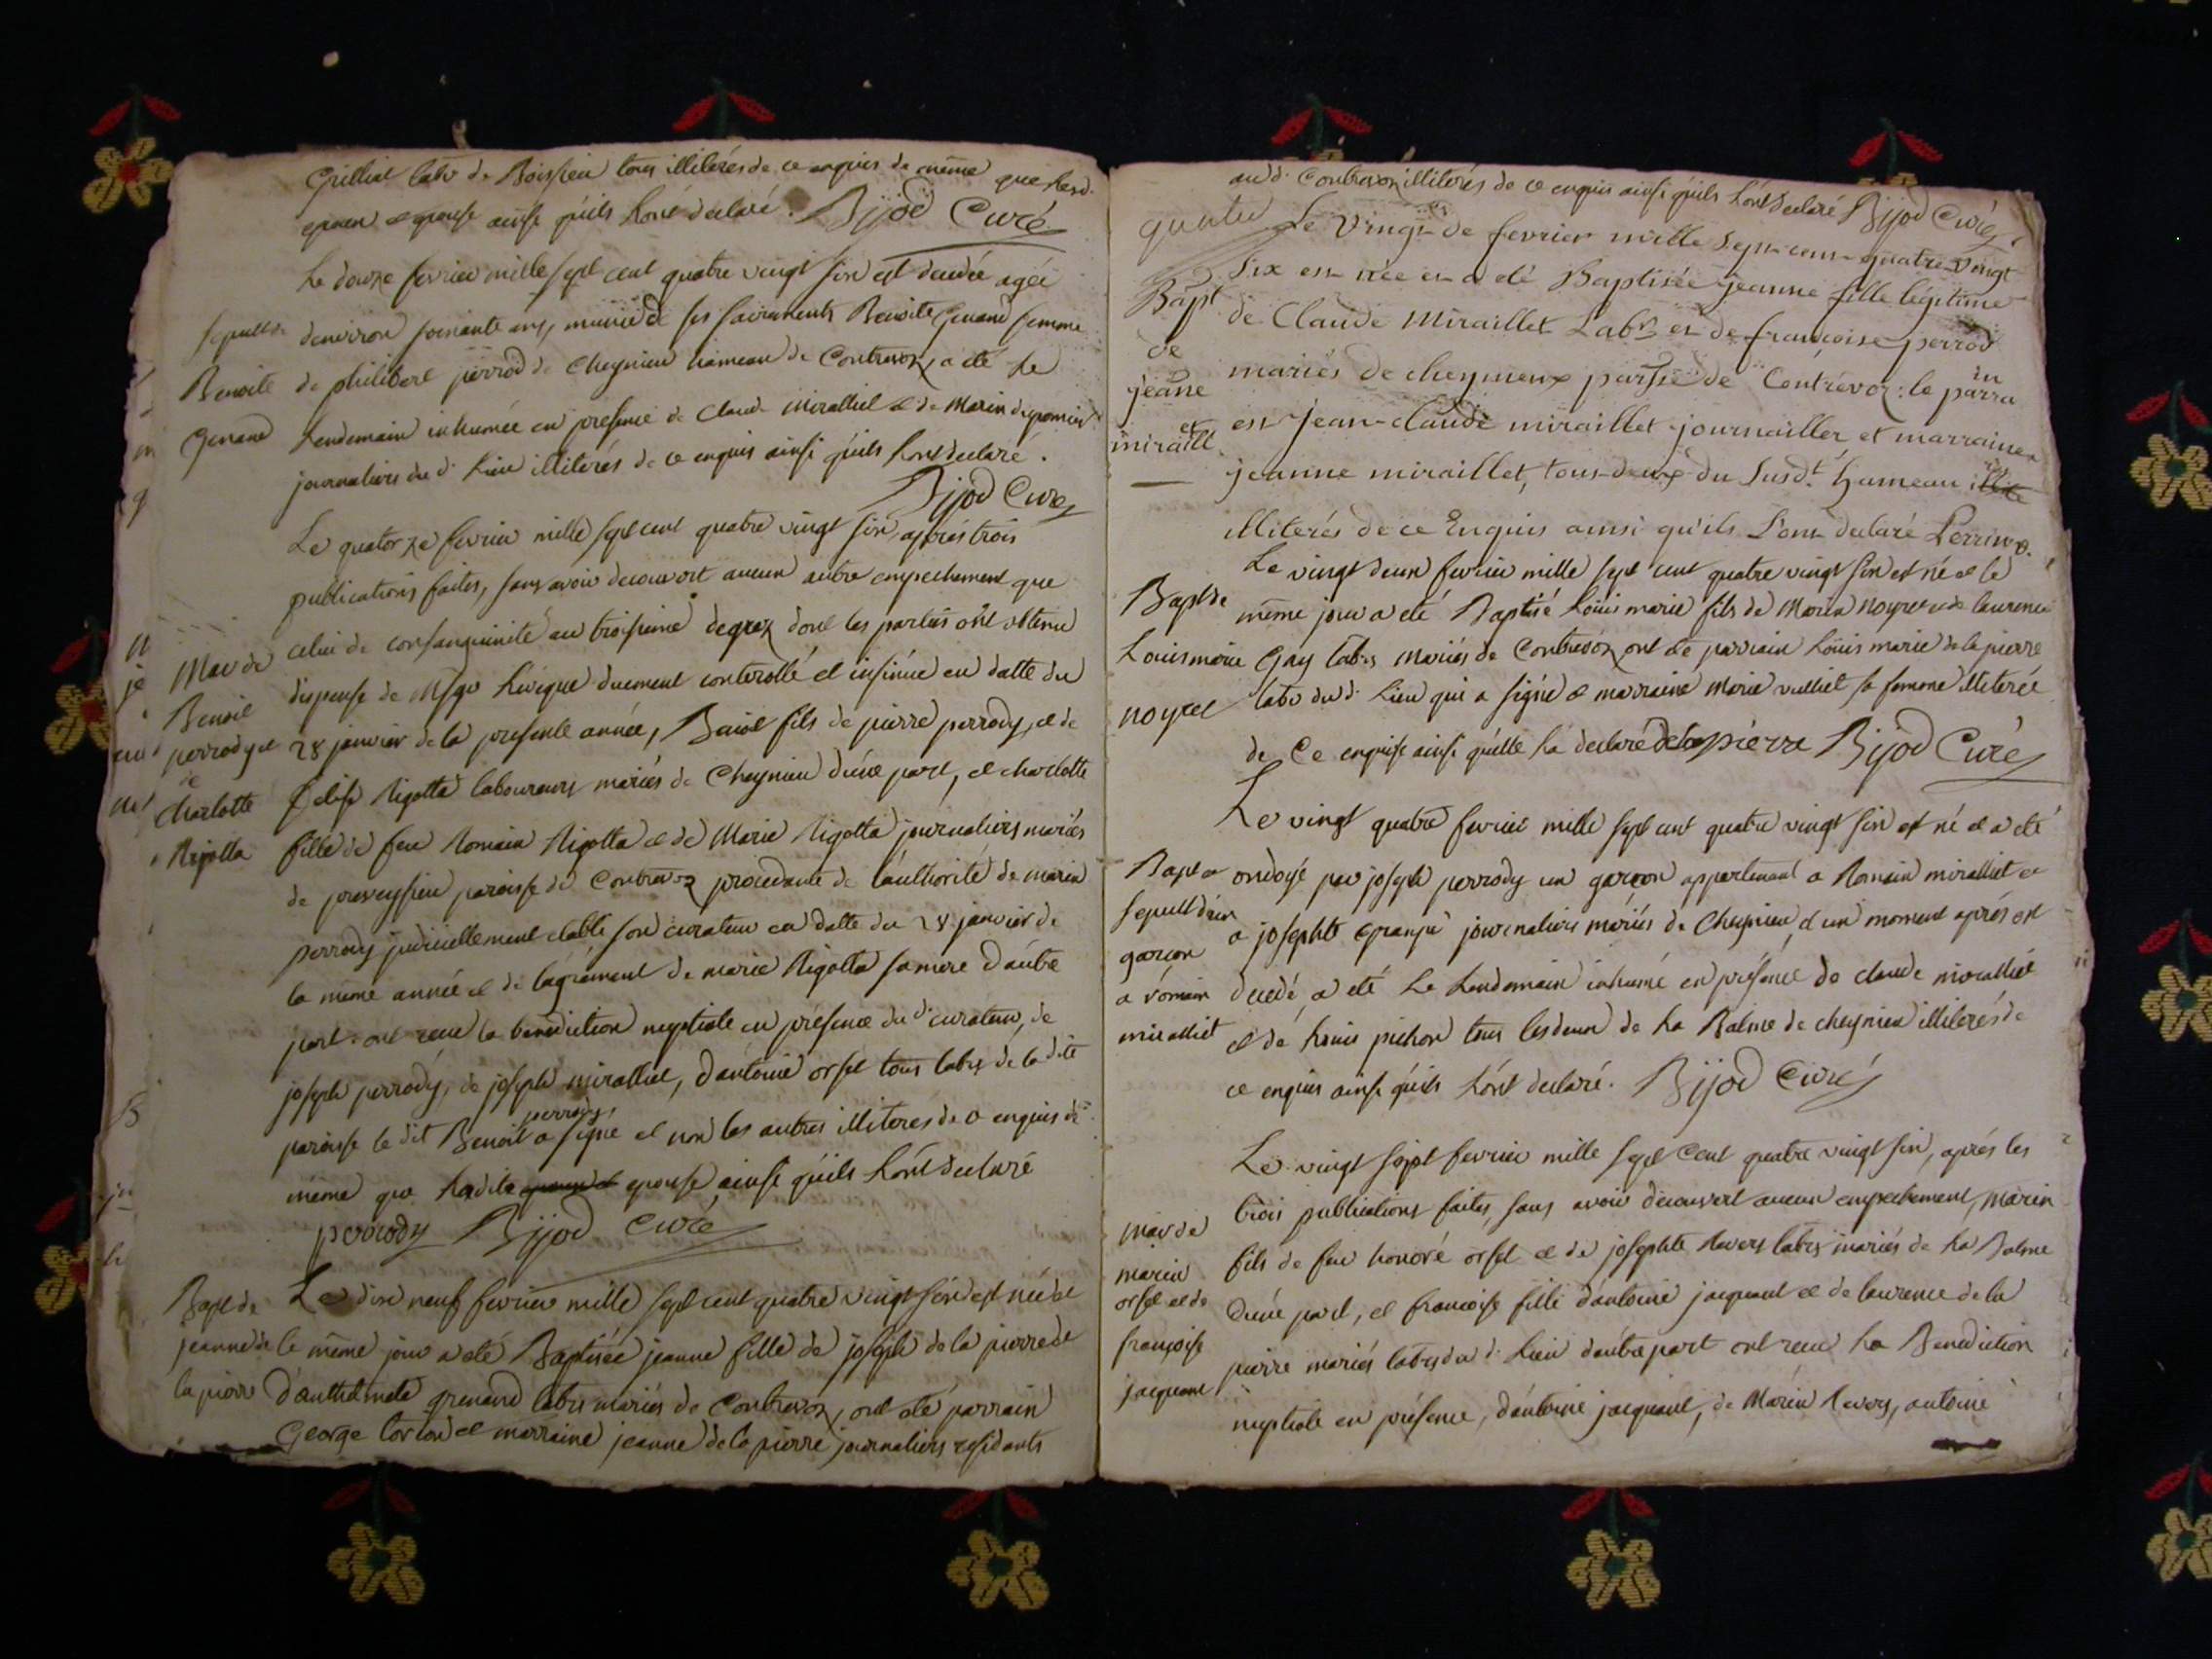 Grilliat labr de Boissieu tous illiterés de ce enquis de même que lesd.
epoux et epouse ainsi qu'ils l'ont declaré. Bijod Curé
Le douze fevrier mille sept cent quatre vingt six est decedée agée
sepult de d'environ soixante ans, munie de ses sacrements Benoite Genand femme
Benoite de philibert perrod de Cheynieu hameau de Contrevoz, a eté le
Genand lendemain inhumée en presence de Claude Miralliet et de Marin
journaliers du d. Lieu illiterés de ce enquis ainsi qu'ils l'ont declaré.
Bijod Curé
Le quatorze fevrier mille sept cent quatre vingt six, aprés trois
publications faites, sans avoir decouvert aucun autre empechement que
celui de consanguinité au troisieme degrez dont les parties ont obtenu
Mar de dispense de Msgr L'evêque duement controllé et insinué en datte du
Benoit
perrody et 28 janvier de la presente année, Benoit fils de pierre perrody, et de
de
Charlotte Rigotta laboureurs mariés de Cheynieu d'une part, et charlotte
Rigotta fille de feu Romain Rigotta et de Marie Rigotta journaliers mariés
de preveyssieu paroisse de Contrevoz procedante de l'authorité de marin
perrody judiciellement etabli son curateur en datte du 28 janvier de
la même année et de l'agrément de marie Rigotta sa mere d'autre
part ont recu la benediction nuptiale en présence du d. curateur, de
joseph perrody, de joseph miralliet, d'antoine orsel tous labrs de la dite
paroisse le dit Benoit perrody a signé et non les autres illiteres de ce enquis de
même que ladite epouse, ainsi qu'ils l'ont declaré
perrody Bijod Curé
Bapt de Le dix neuf fevrier mille sept cent quatre vingt six est née et
jeanne de le même jour a eté Baptisée jeanne fille de joseph de la pierre et
la pierre d'anthelmete grenand labrs mariés de Contrevoz, ont eté parrain
George torton et marraine jeanne de la pierre journaliers residants
au d. Contrevoz illiterés de ce enquis ainsi qu'ils l'ont declaré Bijod Curé
quatre Le Vingt de fevrier mille Sept cent quatre Vingt
Six est née et a eté Baptisée jeanne fille légitime
Bapt de Claude Miraillet Labr et de françoise perrod
de
jeanne mariés de cheynieux parsse de Contrevoz: le parrain
et est jean-claude miraillet journaillier et marraine
miraill. jeanne miraillet, tous deux du Susdt. hameau
illiterés de ce Enquis ainsi qu'ils L'ont declaré Perrin v.
Le vingt deux fevrier mille sept cent quatre vingt six est né et le
Bapt de même jour a eté Baptisé Louis marie fils de Marin noyret et de laurence
Louis marie Gay labrs mariés de Contrevoz ont eté parrain Louis marie de la pierre
noyret labr du d. Lieu qui a signé et marraine Marie vulliet sa femme illiterée
de Ce enquise ainsi qu'elle l'a declaré delapierre Bijod Curé
Le vingt quatre fevrier mille sept cent quatre vingt six est né et a eté
Bapt et ondoyé par joseph perrody un garçon appartenant a Romain miralliet et
sepult d'un
garçon a josephte grangé journaliers mariés de Cheynieu, et un moment aprés est
a romain decedé, a eté Le Lendemain inhumé en présence de claude miralliet
miralliet et de Louis pichon tous les deux de La Balme de cheynieu illiterés de
ce enquis ainsi qu'ils l'ont declaré. Bijod Curé
Le vingt sept fevrier mille sept Cent quatre vingt six, aprés les
trois publications faites, sans avoir decouvert aucun empechement, Marin
Mar de fils de feu honoré orsel et de josephte Revers labrs mariés de La Balme
marin
orsel et de d'une part, et francoise fille d'antoine jacquant et de laurence de la
françoise pierre mariés labrs du d. Lieu d'autre part ont recu La Benediction
jacquant nuptiale en présence, d'antoine jacquant, de Marin Revers, antoine